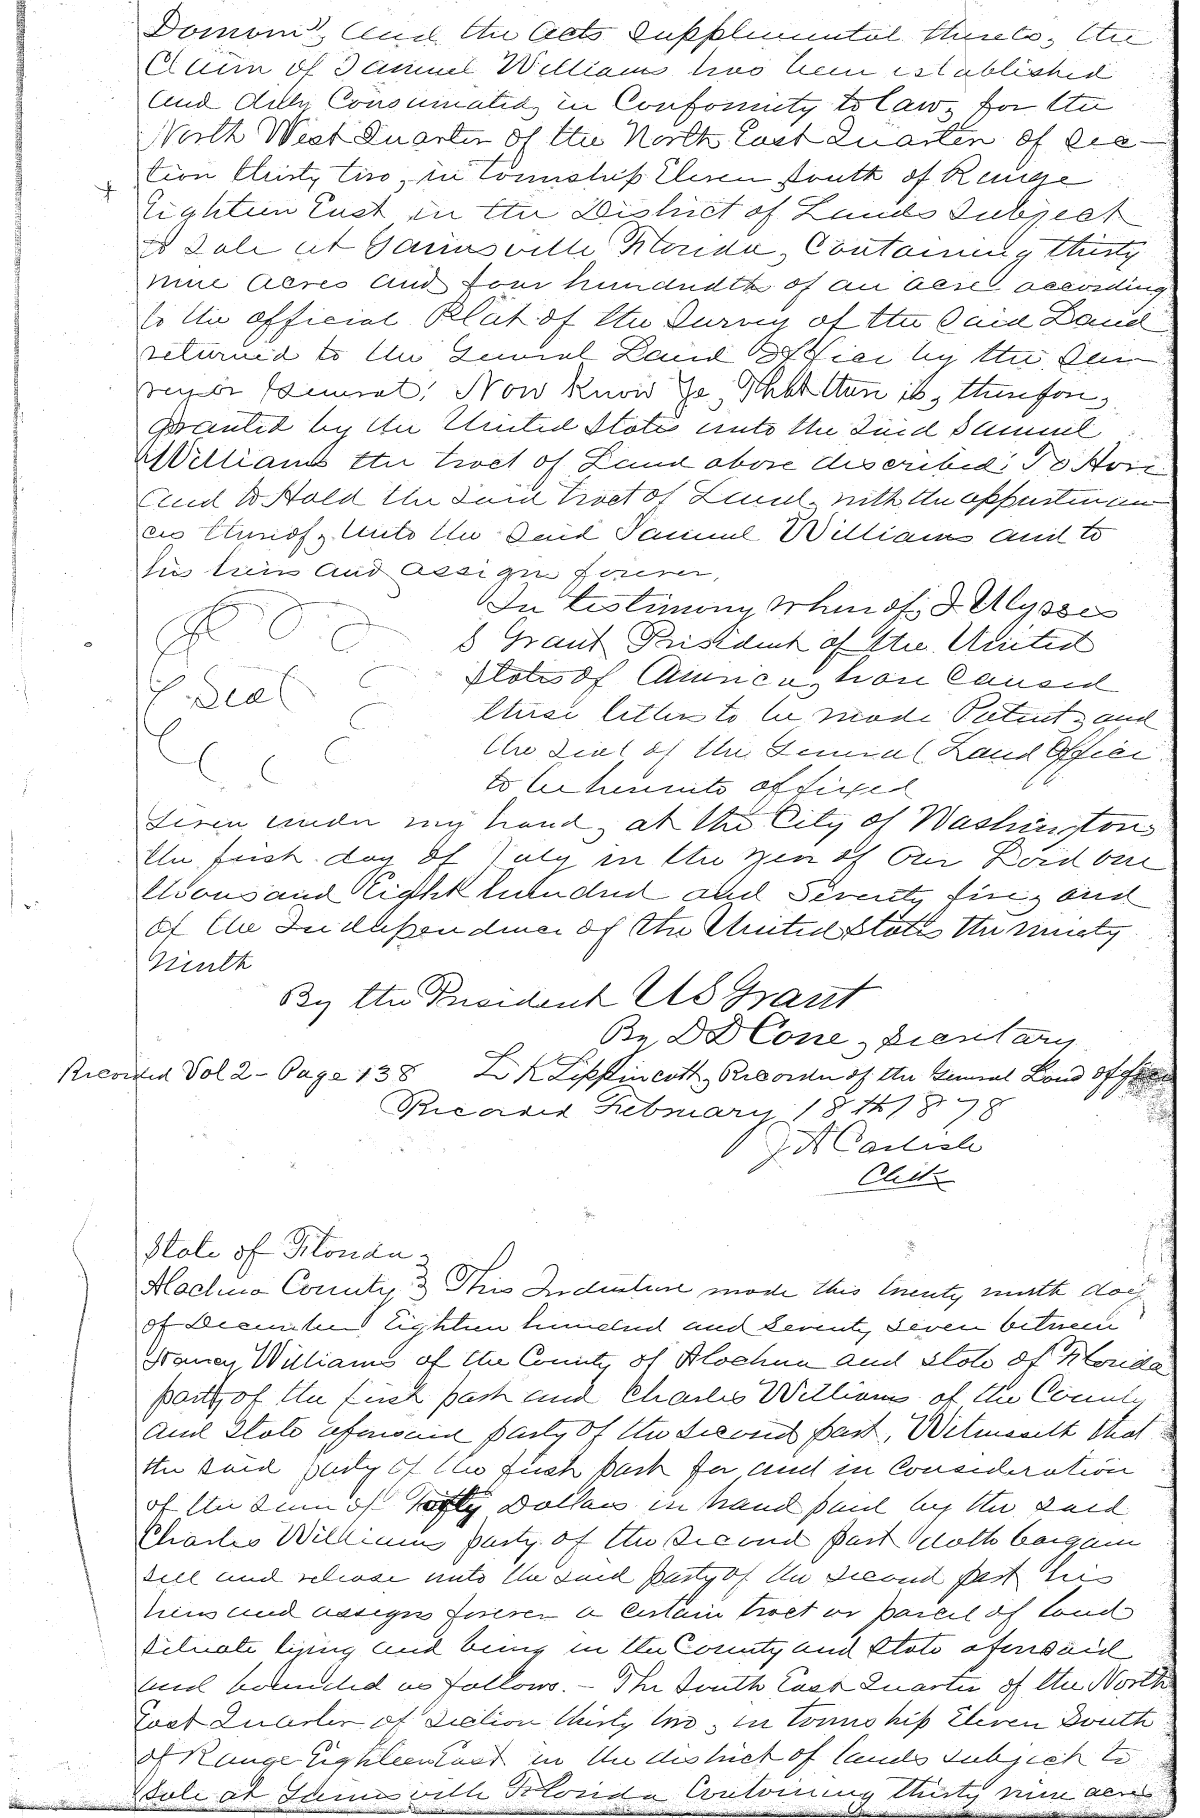 Domain", and the acts supplemental thereto, the
Claim of Samuel Williams has been established
and duly Consumated, in Conformity to law, for the
North West Quarter of the North East Quarter of Sec-
tion thirty two, in Township Eleven South of Range
Eighteen East in the District of Lands Subject
to Sale at Gainesville Florida, Containing thirty
nine acres and four hundredth of an acre according
to the official Plat of the Survey of the Said Land
returned to the General Land Office by the Sur
veyor General: Now Know Ye, That there is, therefore,
granted by the United States unto the Said Samuel
Williams the tract of Land above described: To Have
and to Hold the said tract of Land, with the appurtenan
ces thereof, unto the Said Samuel Williams and to
his heirs and assigns forever,
In testimony whereof, I Ulysses
S Grant President of the United
States of America, have Caused
these letters to be made Patent, and
the Seal of the General Land Office
to be hereunto affixed
Seal
Given under my hand, at the City of Washington,
the first day of July in the year of Our Lord one
thousand Eight hundred and Seventy five, and
of the Independence of the United States the ninety
ninth
By the President US Grant
By D D Cone, Secretary
Recorded Vol 2 - Page 138 L K Lippincott, Recorder of the General Land Office
Recorded February 18th 1878
J A Carlisle
Clerk
State of Florida
Alachua County } This Indenture made this twenty ninth day
of December Eighteen hundred and Seventy Seven between
Nancy Williams of the County of Alachua and State of Florida
party of the first part and Charles Williams of the County
and State aforesaid party of the Second part, Witnesseth that
the said party of the first part for and in Consideration
of the Sum of Dollars in hand paid by the said
Charles Williams party of the Second part doth bargain
sell and release unto the said party of the Second part his
heirs and assigns forever a Certain tract or parcel of land
Situate lying and being in the County and State aforesaid
and bounded as follows. - The South East Quarter of the North
East Quarter of Section thirty two, in township Eleven South
of Range Eighteen East in the district of lands subject to
Sale at Gainesville Florida Containing thirty nine acres